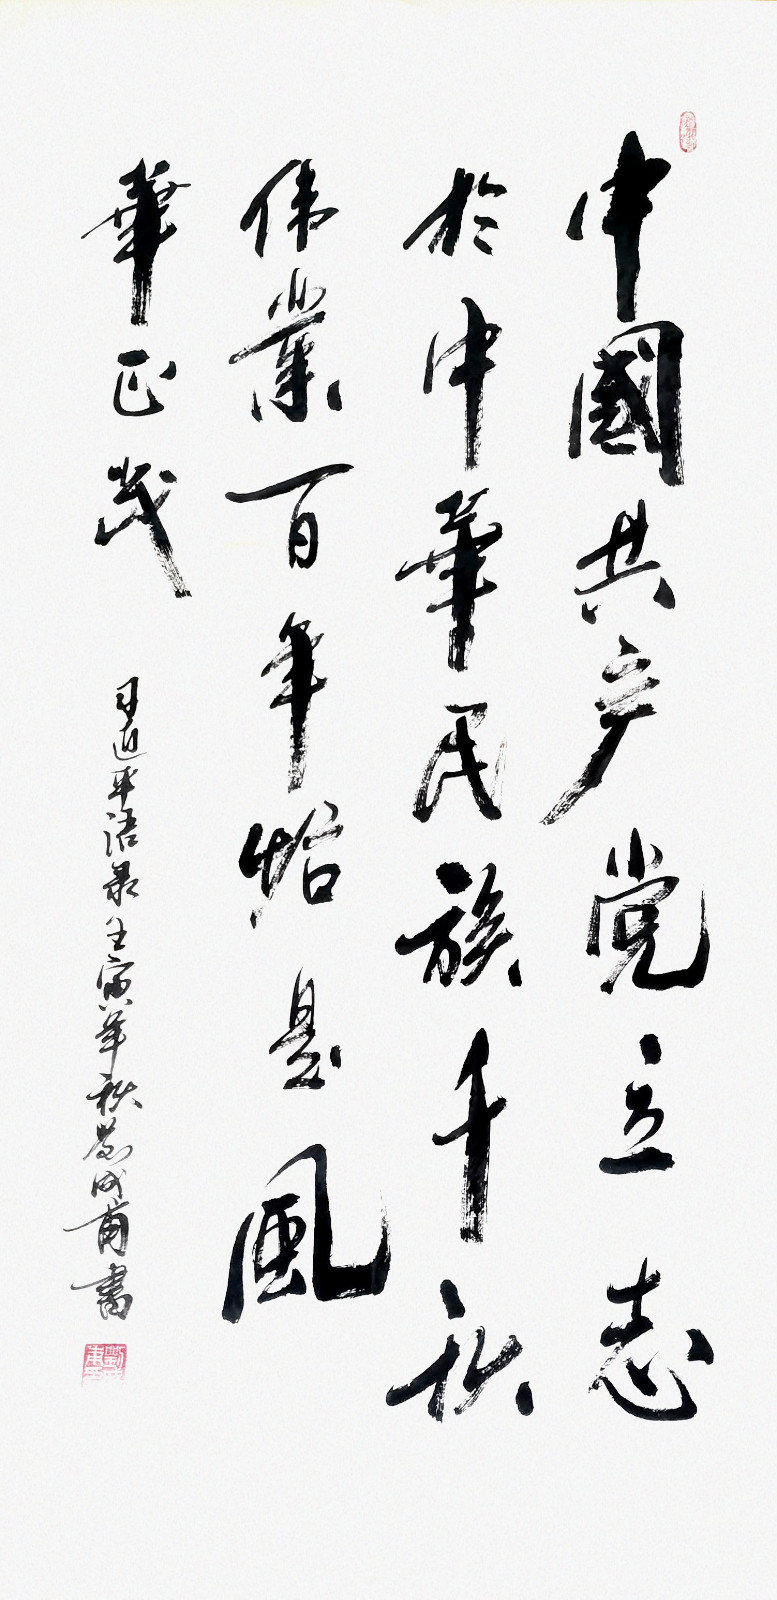 中國共产党立志
於中華民族千秋
伟業百年恰是風
華正茂
习近平语录壬寅年秋刘成甫書